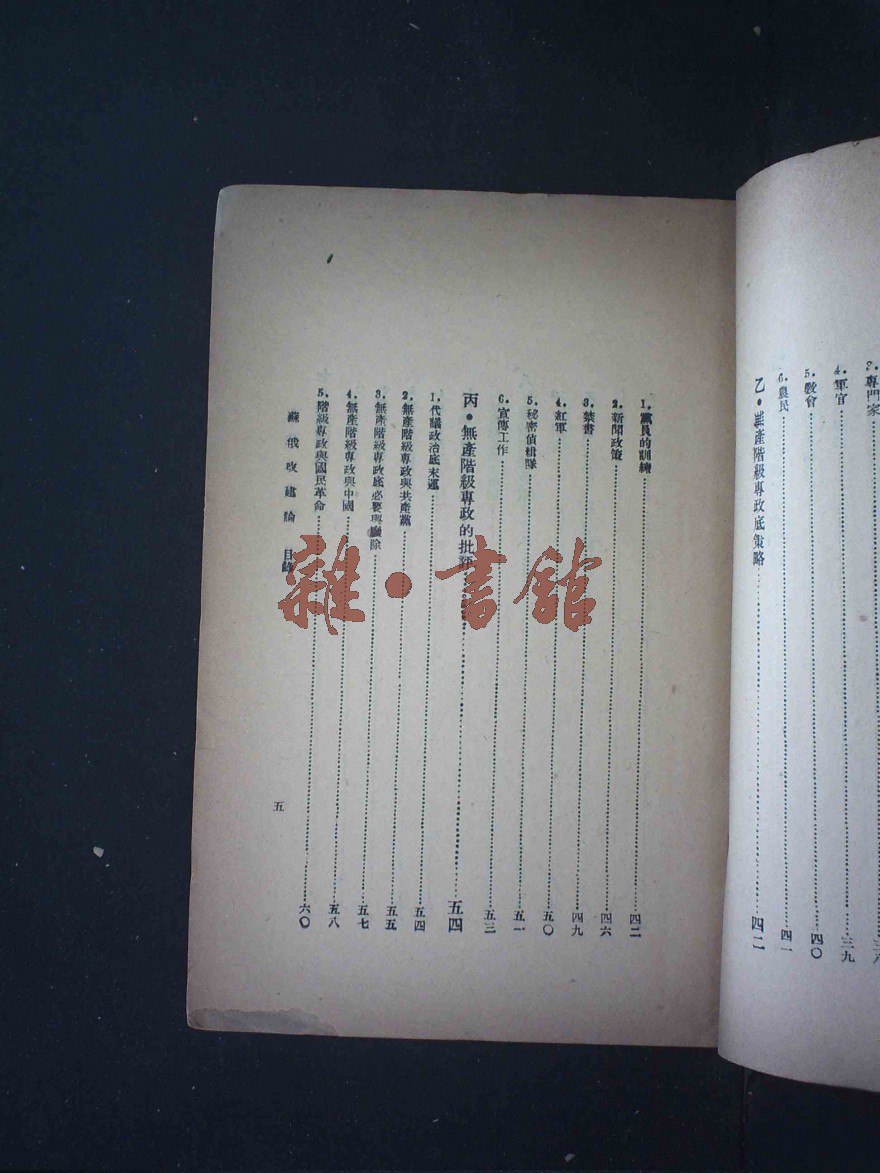 3．專門家……三八
4．軍官……三九
5．教會……四〇
6．農民……四一
乙．無產階級專政底策略……四二
1．黨員的訓練……四二
2．新聞政策……四六
3．禁書……四九
4．紅軍……五〇
5．秘密偵緝隊……五一
6．宣傳工作……五三
丙．無產階級專政的批評……五四
1．代議政治底末運……五四
2．無產階級專政與共產黨……五五
3．無產階級專政底必要與廢除……五七
4．無產階級專政與中國……五八
5．階級專政與國民革命……六〇
蘇俄改建論 目錄
五
雜·書館